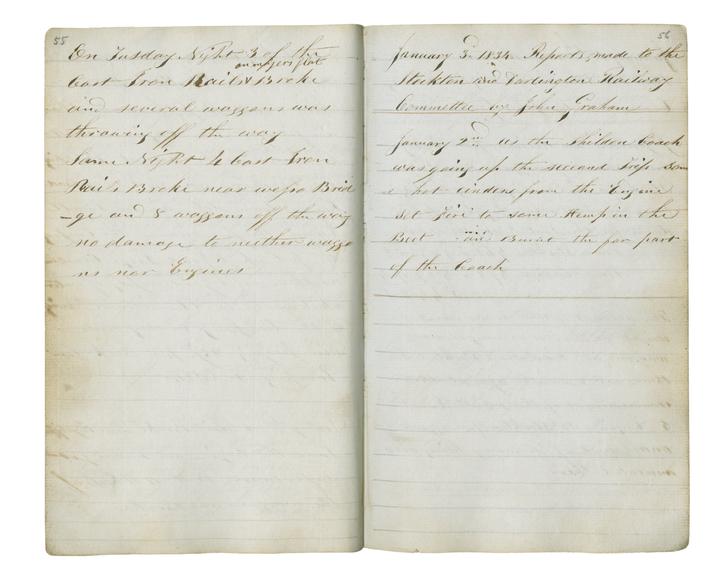 55
On Tusday Night 3 of the
Cast Iron Rails Broke
and several waggons was
throwing off the way
Same Night 4 Cast Iron
Rails Broke near Brid
-ge and 8 waggons off the way
no damage to neither waggo
ns nor Engines
56
January 3d 1834 Reports made to the
Stockton and Darlington Railway
Committee by John Graham
January 2nd As the Shildon Coach
was going up the second Trip Som
e hot cinders from the Engine
set Fire to some Hemp in the
Boot and Burnt the far part
of the Coach